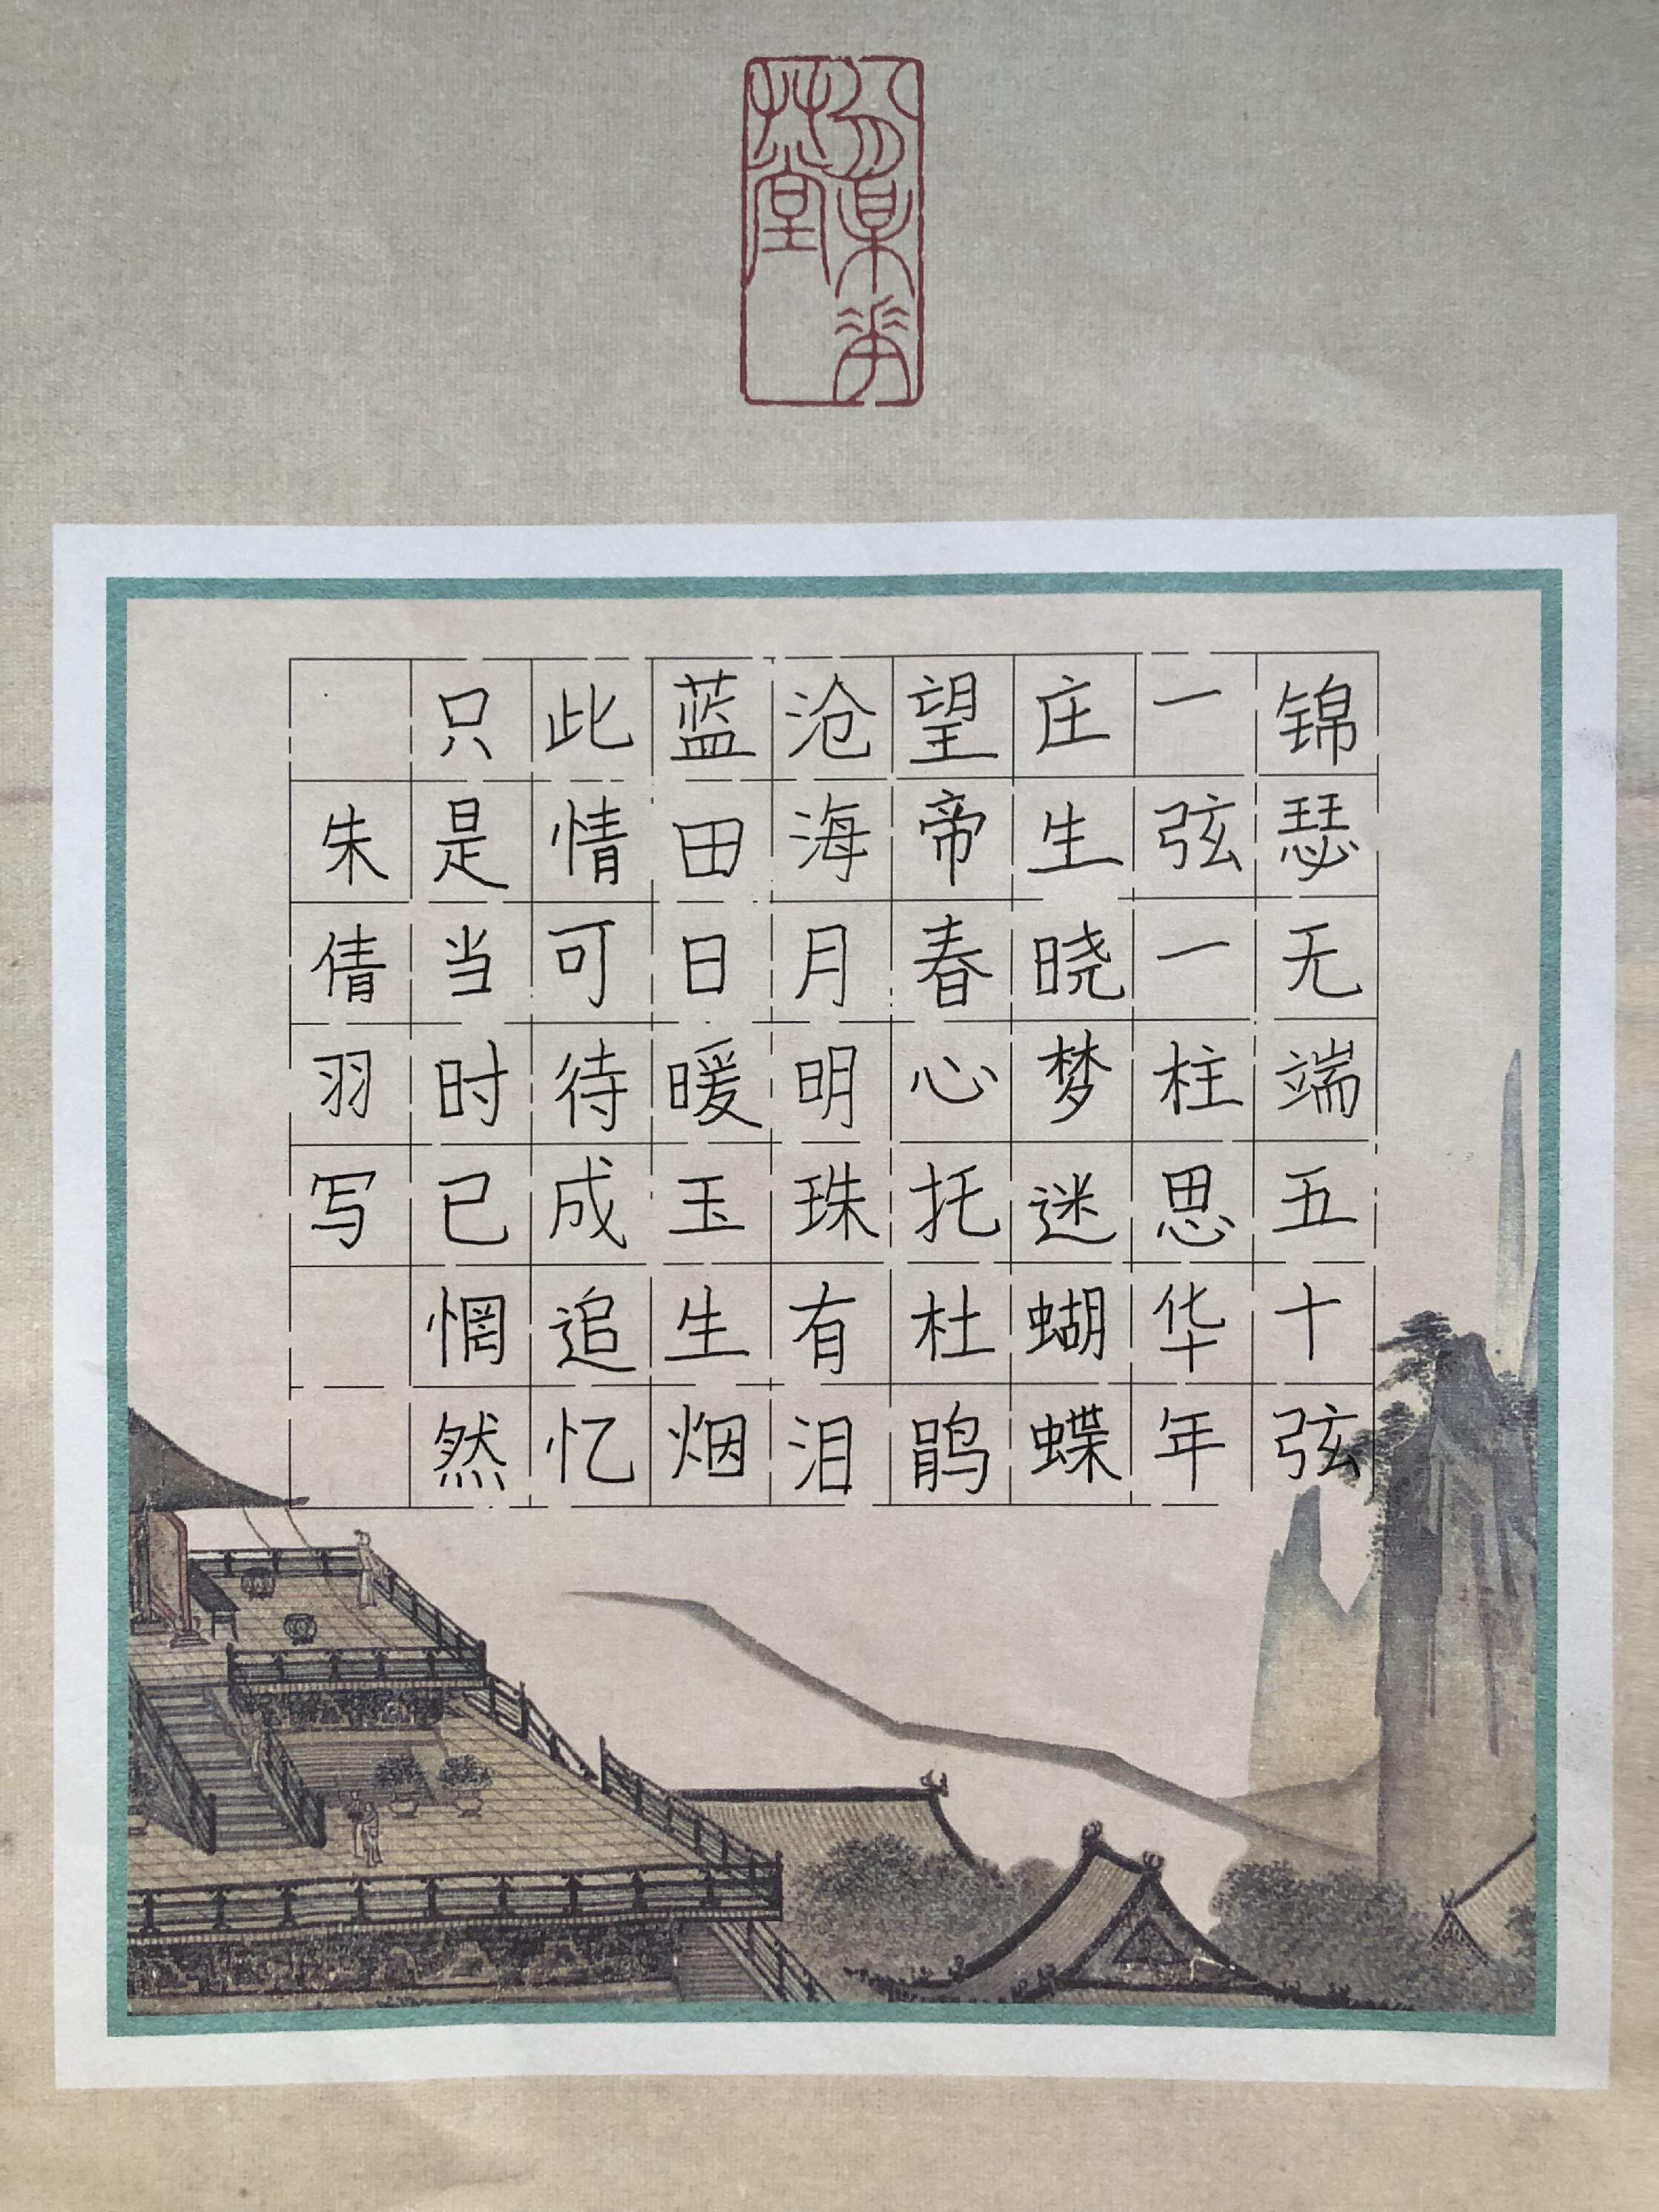 锦瑟无端五十弦
一弦一柱思华年
庄生晓梦迷蝴蝶
望帝春心托杜鹃
沧海月明珠有泪
蓝田日暖玉生烟
此情可待成追忆
只是当时已惘然
朱倩羽写